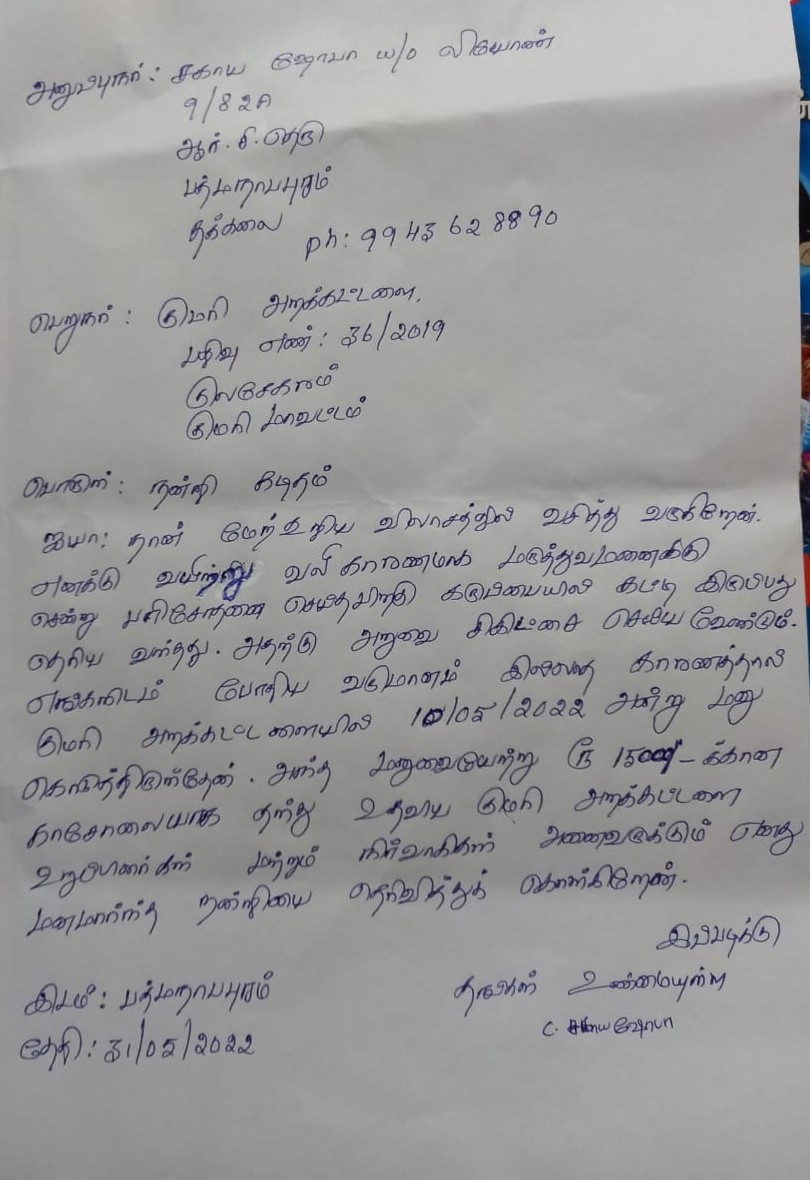 அனுப்புநர் : சகாய ஷோபா w/o லியோண்
9/82A
ஆர். சி. தெரு
பத்மநாபபுரம்
தக்கலை
ph: 99 43 62 88 90
பெறுநர் : குமரி அறக்கட்டளை,
பதிவு எண் : 36/2019
குலசேகரம்
குமரி மாவட்டம்
பொருள் : நன்றி கடிதம்
ஐயா: நான் மேற்கூறிய விலாசத்தில் வசித்து வருகிறேன்.
எனக்கு வயிற்று வலி காரணமாக மருத்துவமனைக்கு
சென்று பரிசோதனை செய்தபிறகு கருப்பையில் கட்டி இருப்பது
தெரிய வந்தது. அதற்கு அறுவை சிகிட்சை செய்ய வேண்டும்.
எங்களிடம் போதிய வருமானம் இல்லாத காரணத்தால்
குமரி அறக்கட்டளையில் 10/05/2022 அன்று மனு
கொடுத்திருந்தேன். அந்த மனுவைஏற்று ரூ 15000/- க்கான
காசோலையாக தந்து உதவிய குமரி அறக்கட்டளை
உறுப்பினர்கள் மற்றும் நிர்வாகிகள் அனைவருக்கும் எனது
மனமார்ந்த நன்றியை தெரிவித்துக் கொள்கிறேன்.
இப்படிக்கு
இடம் : பத்மநாபபுரம்
தங்கள் உண்மையுள்ள
தேதி : 31/05/2022
C. சகாய ஷோபா